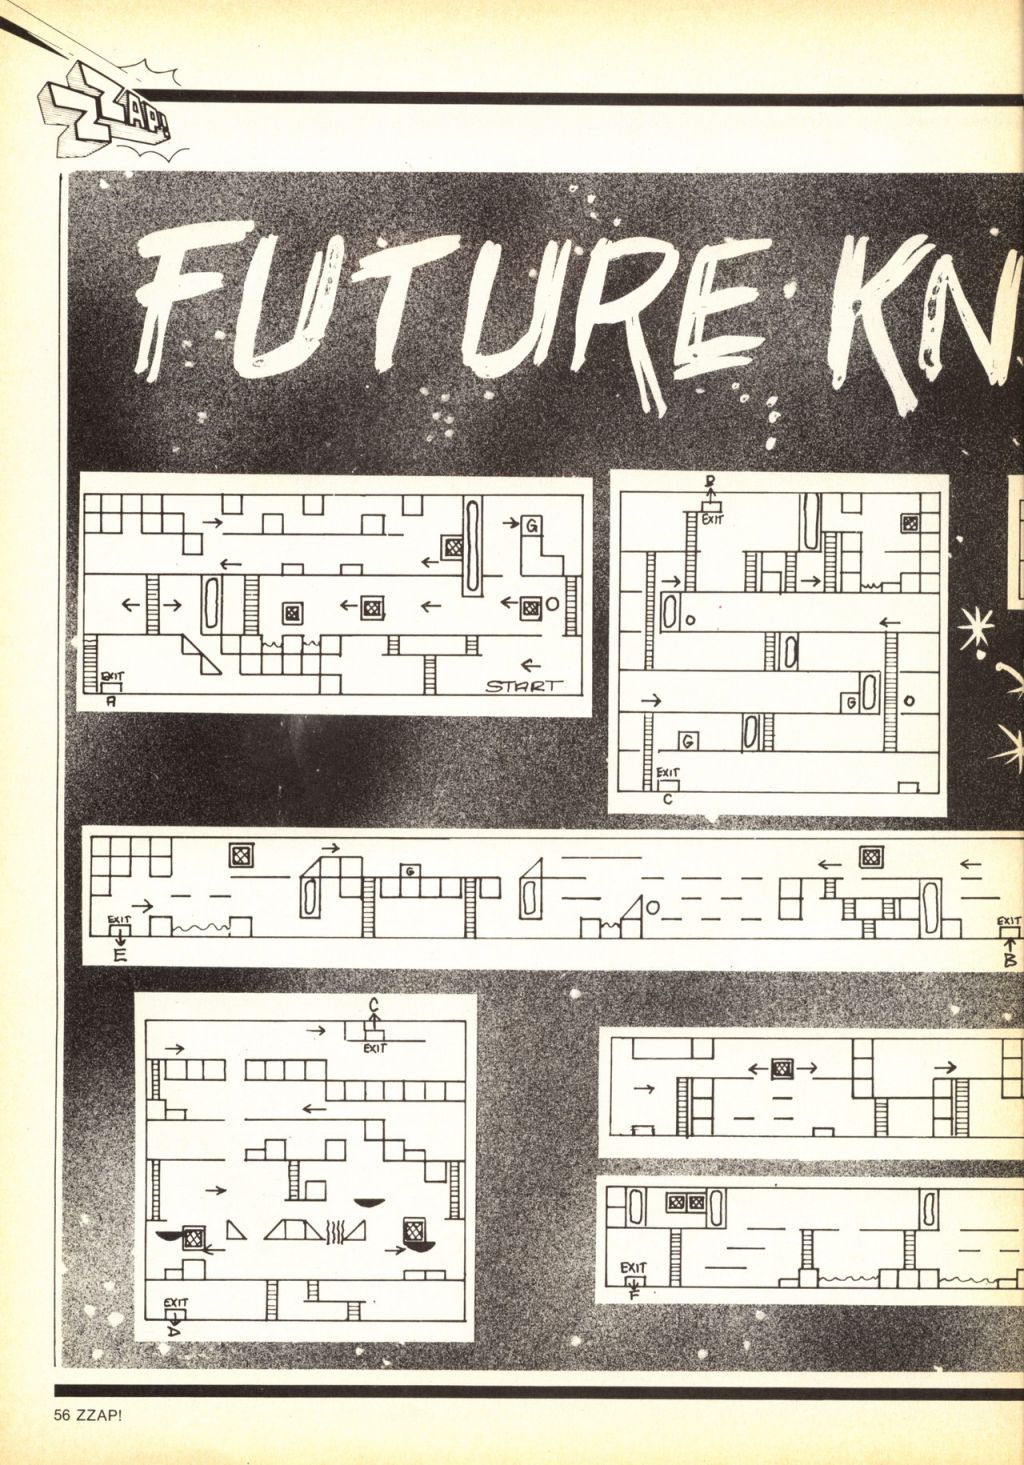 ZZAP!
FUTURE KN
G
EXIT
A
START
B
EXIT
G
G
EXIT
C
G
EXIT
E
EXIT
B
C
EXIT
EXIT
D
EXIT
F
56 ZZAP!